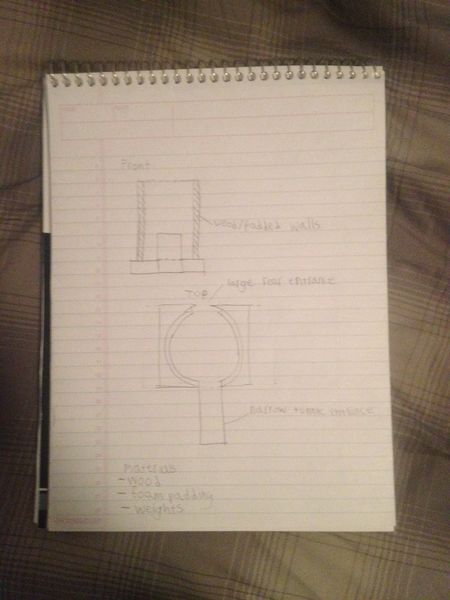 Front
wood/Padded walls
large rear entrance
TOP
narrow tunnel entrance
Materials
- wood
- foam padding
- weights